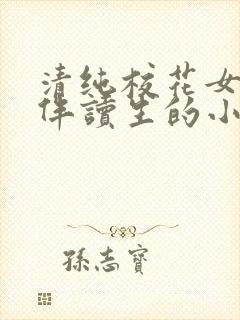 清纯校花女
伴讀生的小
孫志寶